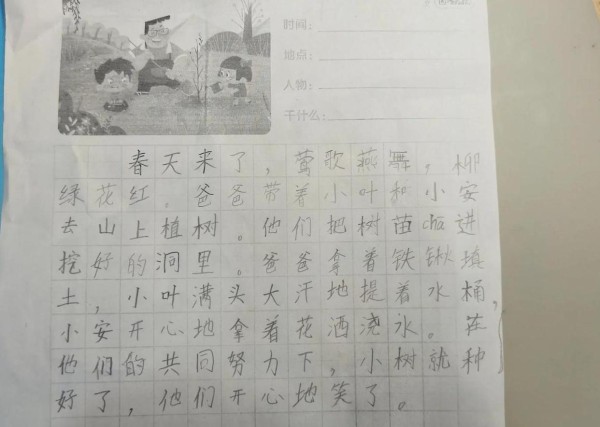 时间：
地点：
人物：
干什么：
春天来了，莺歌燕舞，柳
绿花红。爸爸带着小叶和小安
去山上植树。他们把树苗cha进
挖好的洞里。爸爸拿着铁锹填
土，小叶满头大汗地提着水桶，
小安开心地拿着花洒浇水。在
他们的共同努力下，小树就种
好了，他们开心地笑了。